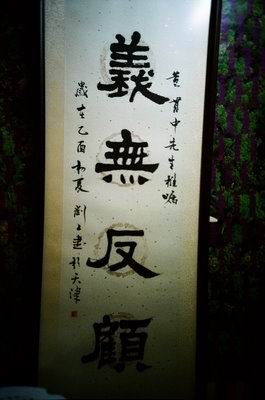 黃貫中先生雅嘱
義無反顧
歲在乙酉初夏劉書於天津